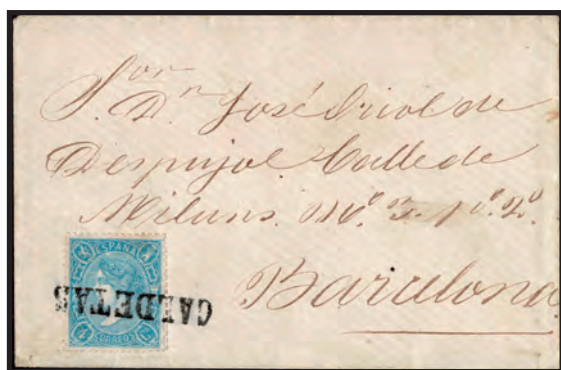 Sor
S. Dn José Oriol de
Despujol Calle de
Milans. No. 3. 1o. 2o.
Barcelona
ESPAÑA
CALDETAS
CORREOS